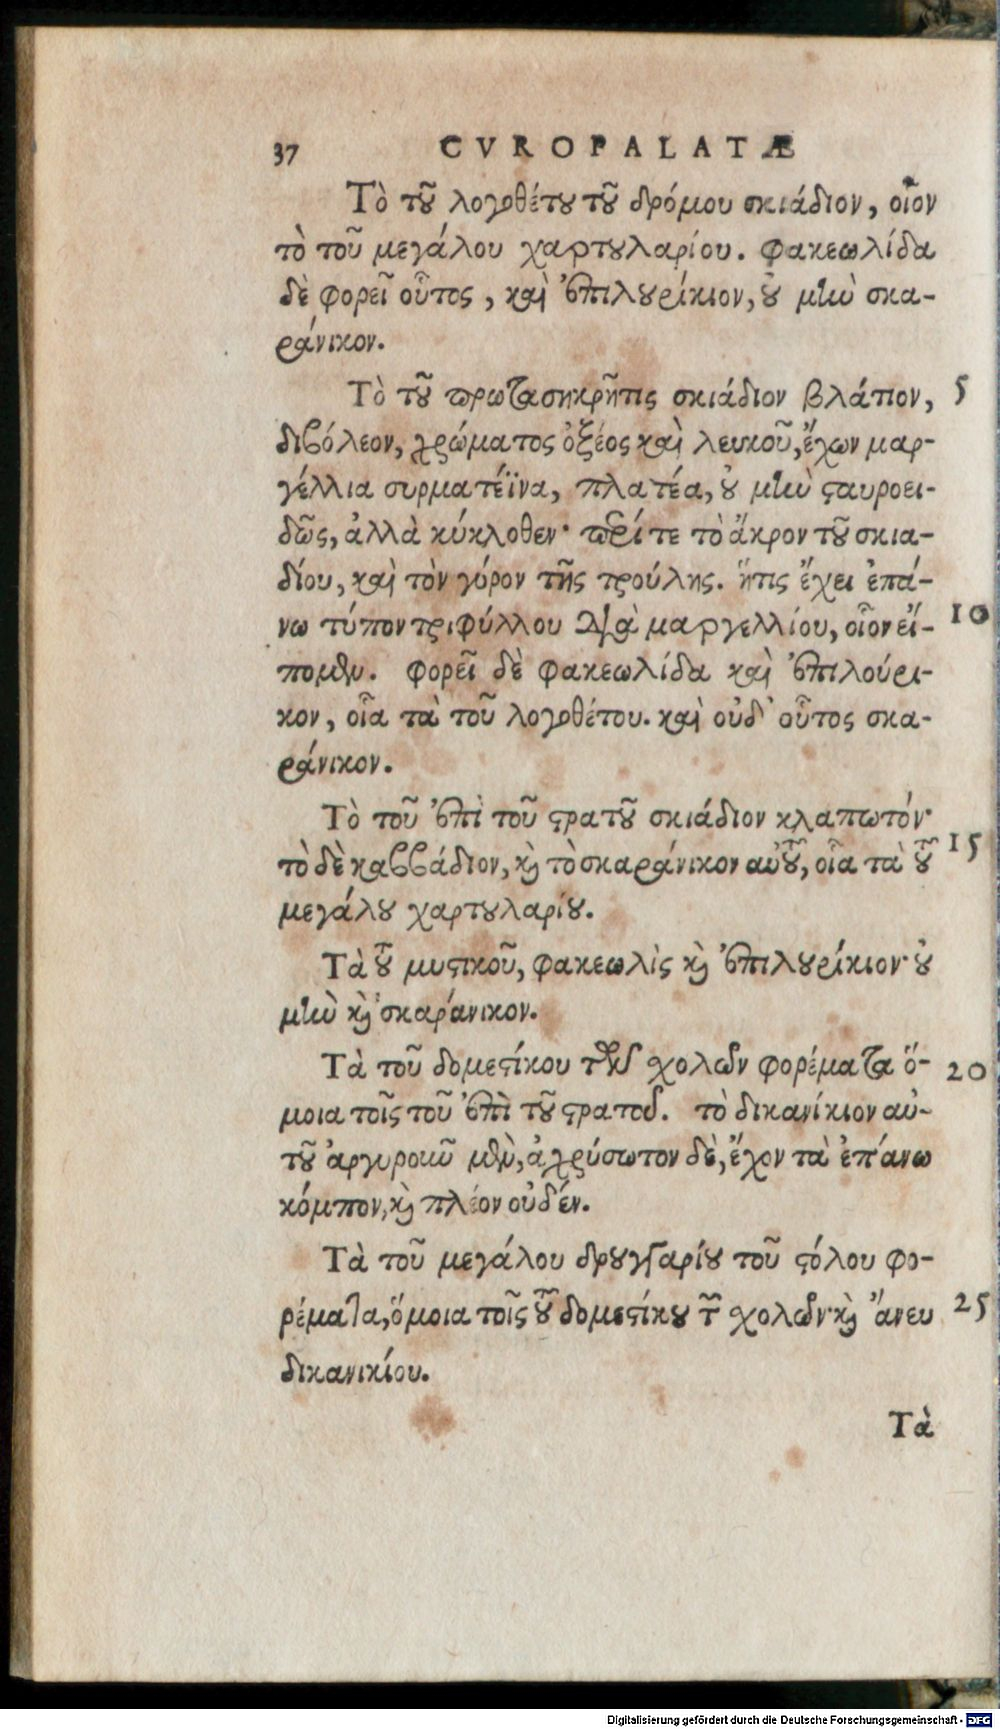 37 CVROPALATÆ
Τὸ τοῦ λογοθέτου τοῦ δρόμου σκιάδιον, οἷον
τὸ τοῦ μεγάλου χαρτουλαρίου. φακεωλίδα
δὲ φορεῖ οὗτος, καὶ ἐπιλουρίκιον, οὐ μὴν σκα-
ράνικον.
Τὸ τοῦ πρωτασηκρῆτις σκιάδιον βλάτιον, 5
διβόλεον, χρώματος ὀξέος καὶ λευκοῦ, ἔχων μαρ-
γέλλια συρματέϊνα, πλατέα, οὐ μὴν σταυροει-
δῶς, ἀλλὰ κύκλοθεν· περί τε τὸ ἄκρον τοῦ σκια-
δίου, καὶ τὸν γύρον τῆς τρούλης. ἥτις ἔχει ἐπά-
νω τύπον τριφύλλου διὰ μαργελλίου, οἷον εἴ- 10
πομεν. φορεῖ δὲ φακεωλίδα καὶ ἐπιλούρι-
κον, οἷα τὰ τοῦ λογοθέτου. καὶ οὐδ' οὗτος σκα-
ράνικον.
Τὸ τοῦ ἐπὶ τοῦ στρατοῦ σκιάδιον κλαπωτόν·
τὸ δὲ καββάδιον, καὶ τὸ σκαράνικον αὐτοῦ, οἷα τὰ τοῦ 15
μεγάλου χαρτουλαρίου.
Τὰ τοῦ μυστικοῦ, φακεωλὶς καὶ ἐπιλουρίκιον· οὐ
μὴν καὶ σκαράνικον.
Τὰ τοῦ δομεστίκου τῶν σχολῶν φορέματα ὅ- 20
μοια τοῖς τοῦ ἐπὶ τοῦ στρατοῦ. τὸ δικανίκιον αὐ-
τοῦ ἀργυροῦν μὲν, ἀχρύσωτον δὲ, ἔχον τὰ ἐπάνω
κόμπον, καὶ πλέον οὐδέν.
Τὰ τοῦ μεγάλου δρουγγαρίου τοῦ στόλου φο-
ρέματα, ὅμοια τοῖς τοῦ δομεστίκου τῶν σχολῶν· καὶ ἄνευ 25
δικανικίου.
Τὰ
Digitalisierung gefördert durch die Deutsche Forschungsgemeinschaft - DFG